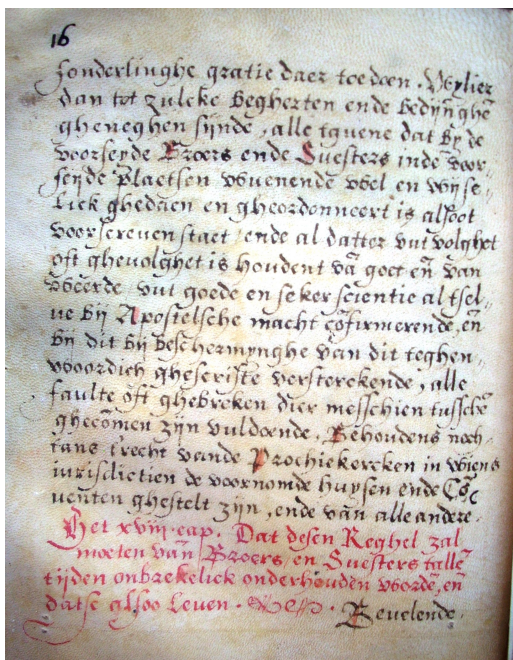 16
sonderlinghe gratie daer toe doen. Wylier
dan tot zulcke begherten ende bedijnghē
gheneghen sijnde, alle tguene dat bij de
voorseyde Broers ende Suesters inde voor-
seyde plaetsen wuenende wel en wijse-
lick ghedaen en gheordonneert is alsoot
voorscreven staet, ende al datter uut volghet
oft ghevolghet is houdent vā goet eñ van
weerde, uut goede en seker scientie al tsel-
ve bij Apostelsche macht cōfirmerende, eñ
bij dit bij bescherminghe van dit teghen-
wooordich ghescrifte versterckende, alle
faulte oft ghebreken dier messchien tusschē
ghecomen zijn vuldoende, Behoudens noch-
tans trecht vande Prochiekercken in wiens
iurisdictien de voornomde huysen ende Cō-
venten ghestelt zijn, ende van alle andere.
Het xviij. cap. Dat desen Reghel zal
moeten van Broers en Suesters talle
tijden onbrekelick onderhouden woordē, eñ
datse alsoo leven.
Bevelende.